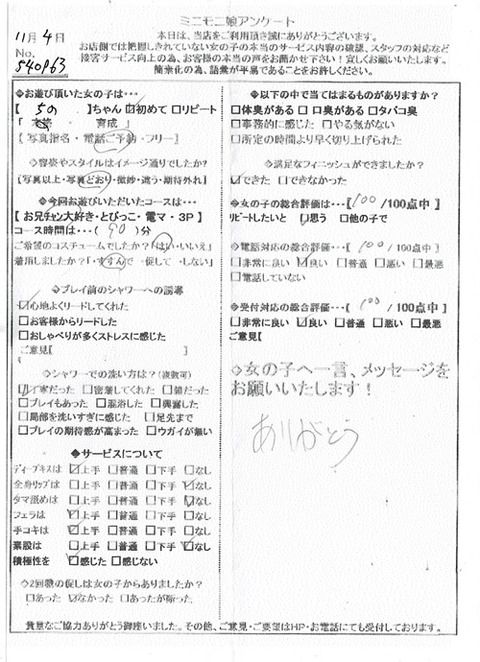 ミニモニ娘アンケート
11月4日
No.
540963
本日は、当店をご利用頂き誠にありがとうございます。
お店側では把握しきれていない女の子の本当のサービス内容の確認、スタッフの対応など
接客サービス向上の為、お客様の本当の声をお聞かせ下さい！宜しくお願いいたします。
簡素化の為、語彙が平易であることをお許しください。
◇お遊び頂いた女の子は…
】ちゃん ☑初めて □リピート
育成」
【写真指名・電話ご予約・フリー】
◇容姿やスタイルはイメージ通りでしたか？
【写真以上・写真どおり・微妙・違う・期待外れ】
◇今回お遊びいただいたコースは…
【お兄チャン大好き・とびっこ・電マ・3P】
コース時間は…(90)分
ご希望のコスチュームでしたか？「はい・いいえ」
着用しましたか？「・すすんで ・促して ・しない」
◆プレイ前のシャワーへの誘導
☑心地よくリードしてくれた
□お客様からリードした
□おしゃべりが多くストレスに感じた
ご意見【
◇シャワーでの洗い方は？（複数可）
☑丁寧だった □密着してくれた □雑だった
□プレイもあった □混浴した □興奮した
□局部を洗いすぎに感じた □足先まで
□プレイの期待感が高まった □ウガイが無い
◆サービスについて
ディープキスは ☑上手 □普通 □下手 □なし
全身リップは □上手 □普通 □下手 ☑なし
タマ舐めは □上手 □普通 □下手 ☑なし
フェラは ☑上手 □普通 □下手 □なし
手コキは ☑上手 □普通 □下手 □なし
素股は □上手 □普通 □下手 ☑なし
積極性を ☑感じた □感じない
◇2回戦の促しは女の子からありましたか？
□あった ☑なかった □あったが断った
◆以下の中で当てはまるものがありますか？
□体臭がある □口臭がある □タバコ臭
□事務的に感じた □やる気がない
□所定の時間より早く切り上げられた
◇満足なフィニッシュができましたか？
☑できた □できなかった
◇女の子の総合評価は…【100/100点中】
リピートしたいと □思う □他の子で
◇電話対応の総合評価…【100/100点中】
□非常に良い ☑良い □普通 □悪い □最悪
□電話していない
◇受付対応の総合評価…【100/100点中】
□非常に良い ☑良い □普通 □悪い □最悪
ご意見【
◇女の子へ一言、メッセージを
お願いいたします！
ありがとう
貴重なご協力ありがとう御座いました。その他、ご意見・ご要望はHP・お電話にても受付しております。